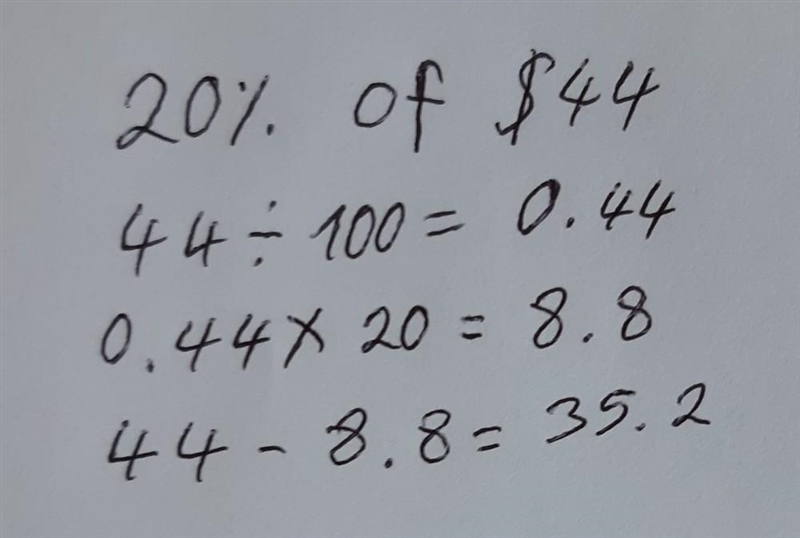 20% of $44
44 ÷ 100 = 0.44
0.44 × 20 = 8.8
44 - 8.8 = 35.2